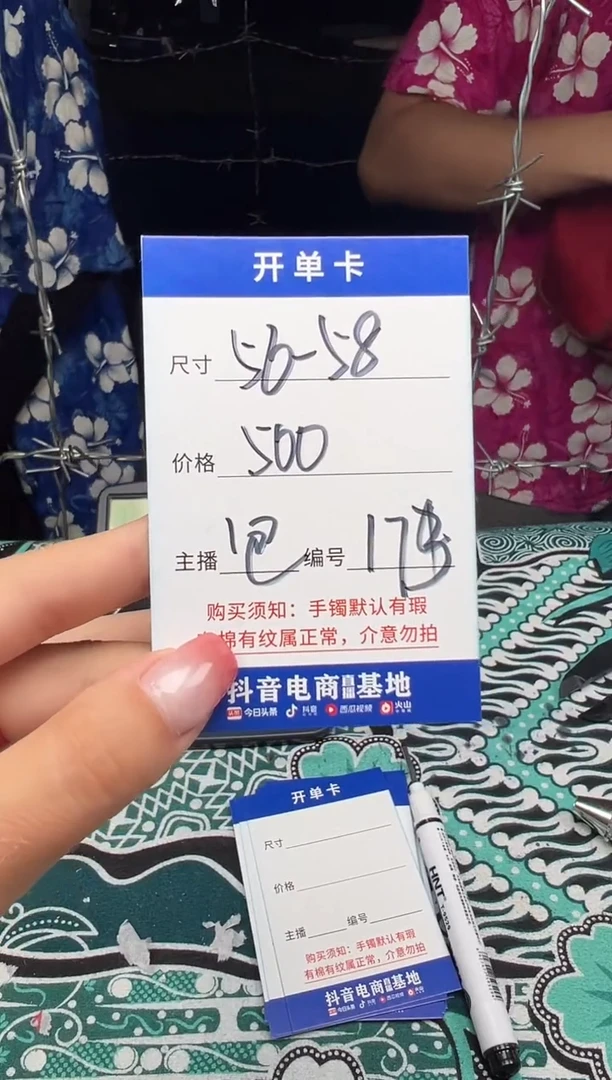 开单卡
尺寸 56-58
价格 500
主播 编号 17
购买须知：手镯默认有瑕
有棉有纹属正常，介意勿拍
抖音电商直播基地
头条 今日头条 抖音 西瓜视频 火山
开单卡
尺寸
价格
主播 编号
购买须知：手镯默认有瑕
有棉有纹属正常，介意勿拍
抖音电商直播基地
今日头条 抖音 西瓜视频 火山
HNT